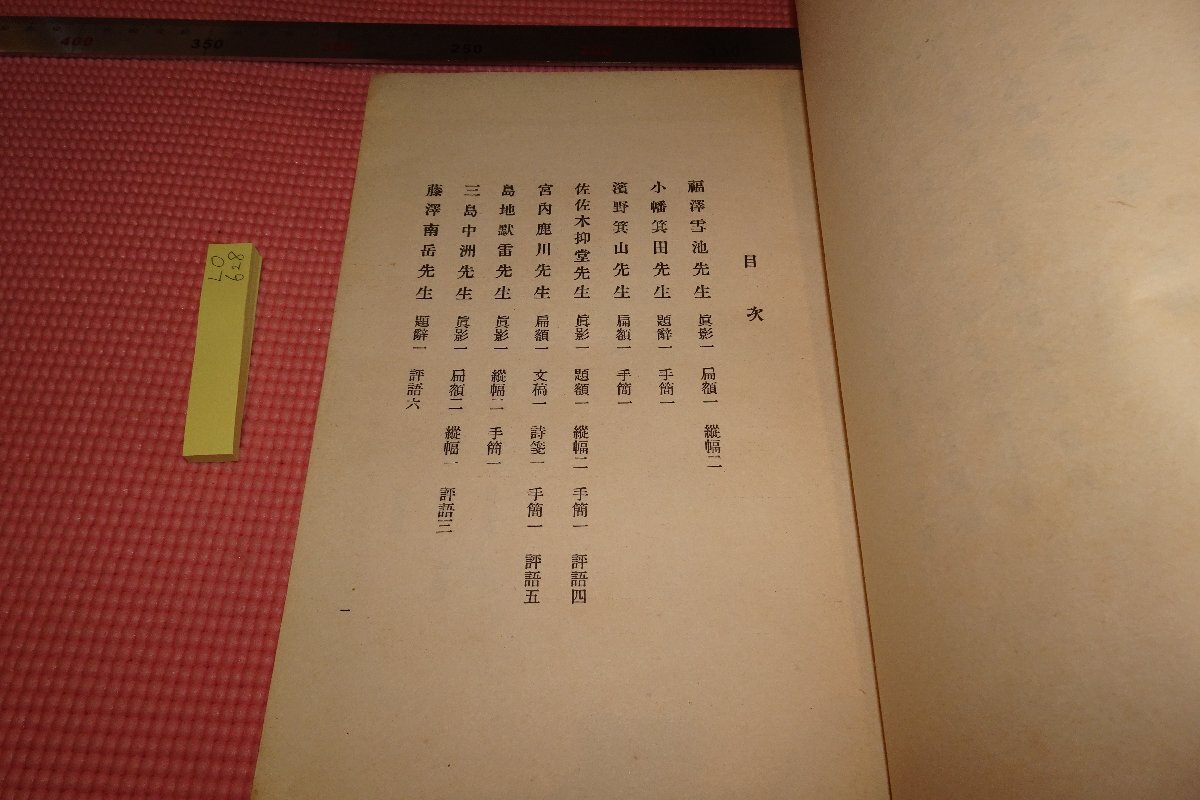 目次
福澤雪池先生 眞影一 扁額一 縱幅二
小幡箕田先生 題辭一 手簡一
濱野箕山先生 扁額一 手簡一
佐佐木抑堂先生 眞影一 題額一 縱幅二 手簡一 評語四
宮內鹿川先生 扁額一 文稿一 詩箋一 手簡一 評語五
島地默雷先生 眞影一 縱幅二 手簡一
三島中洲先生 眞影一 扁額二 縱幅一 評語三
藤澤南岳先生 題辭一 評語六
一
400 350 300 250
LO
628